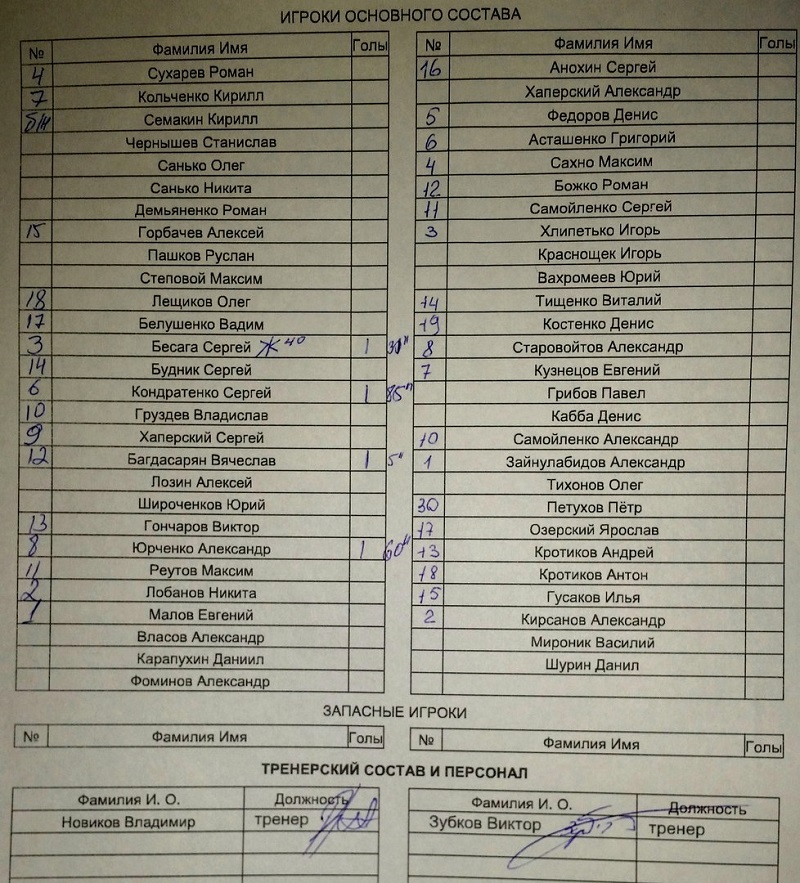 ИГРОКИ ОСНОВНОГО СОСТАВА
№ Фамилия Имя Голы
4 Сухарев Роман
7 Кольченко Кирилл
Б/Н Семакин Кирилл
Чернышев Станислав
Санько Олег
Санько Никита
Демьяненко Роман
15 Горбачев Алексей
Пашков Руслан
Степовой Максим
18 Лещиков Олег
17 Белушенко Вадим
3 Бесага Сергей Ж 40 1
14 Будник Сергей
6 Кондратенко Сергей 1 85"
10 Груздев Владислав
9 Хаперский Сергей
12 Багдасарян Вячеслав 1 5"
Лозин Алексей
Широченков Юрий
13 Гончаров Виктор
8 Юрченко Александр 1 60"
11 Реутов Максим
2 Лобанов Никита
1 Малов Евгений
Власов Александр
Карапухин Даниил
Фоминов Александр
№ Фамилия Имя Голы
16 Анохин Сергей
Хаперский Александр
5 Федоров Денис
6 Асташенко Григорий
4 Сахно Максим
12 Божко Роман
11 Самойленко Сергей
3 Хлипетько Игорь
Краснощек Игорь
Вахромеев Юрий
14 Тищенко Виталий
19 Костенко Денис
8 Старовойтов Александр
7 Кузнецов Евгений
Грибов Павел
Кабба Денис
10 Самойленко Александр
1 Зайнулабидов Александр
Тихонов Олег
30 Петухов Пётр
17 Озерский Ярослав
13 Кротиков Андрей
18 Кротиков Антон
15 Гусаков Илья
2 Кирсанов Александр
Мироник Василий
Шурин Данил
ЗАПАСНЫЕ ИГРОКИ
№ Фамилия Имя Голы
№ Фамилия Имя Голы
ТРЕНЕРСКИЙ СОСТАВ И ПЕРСОНАЛ
Фамилия И. О. Должность
Новиков Владимир тренер
Фамилия И. О. Должность
Зубков Виктор тренер